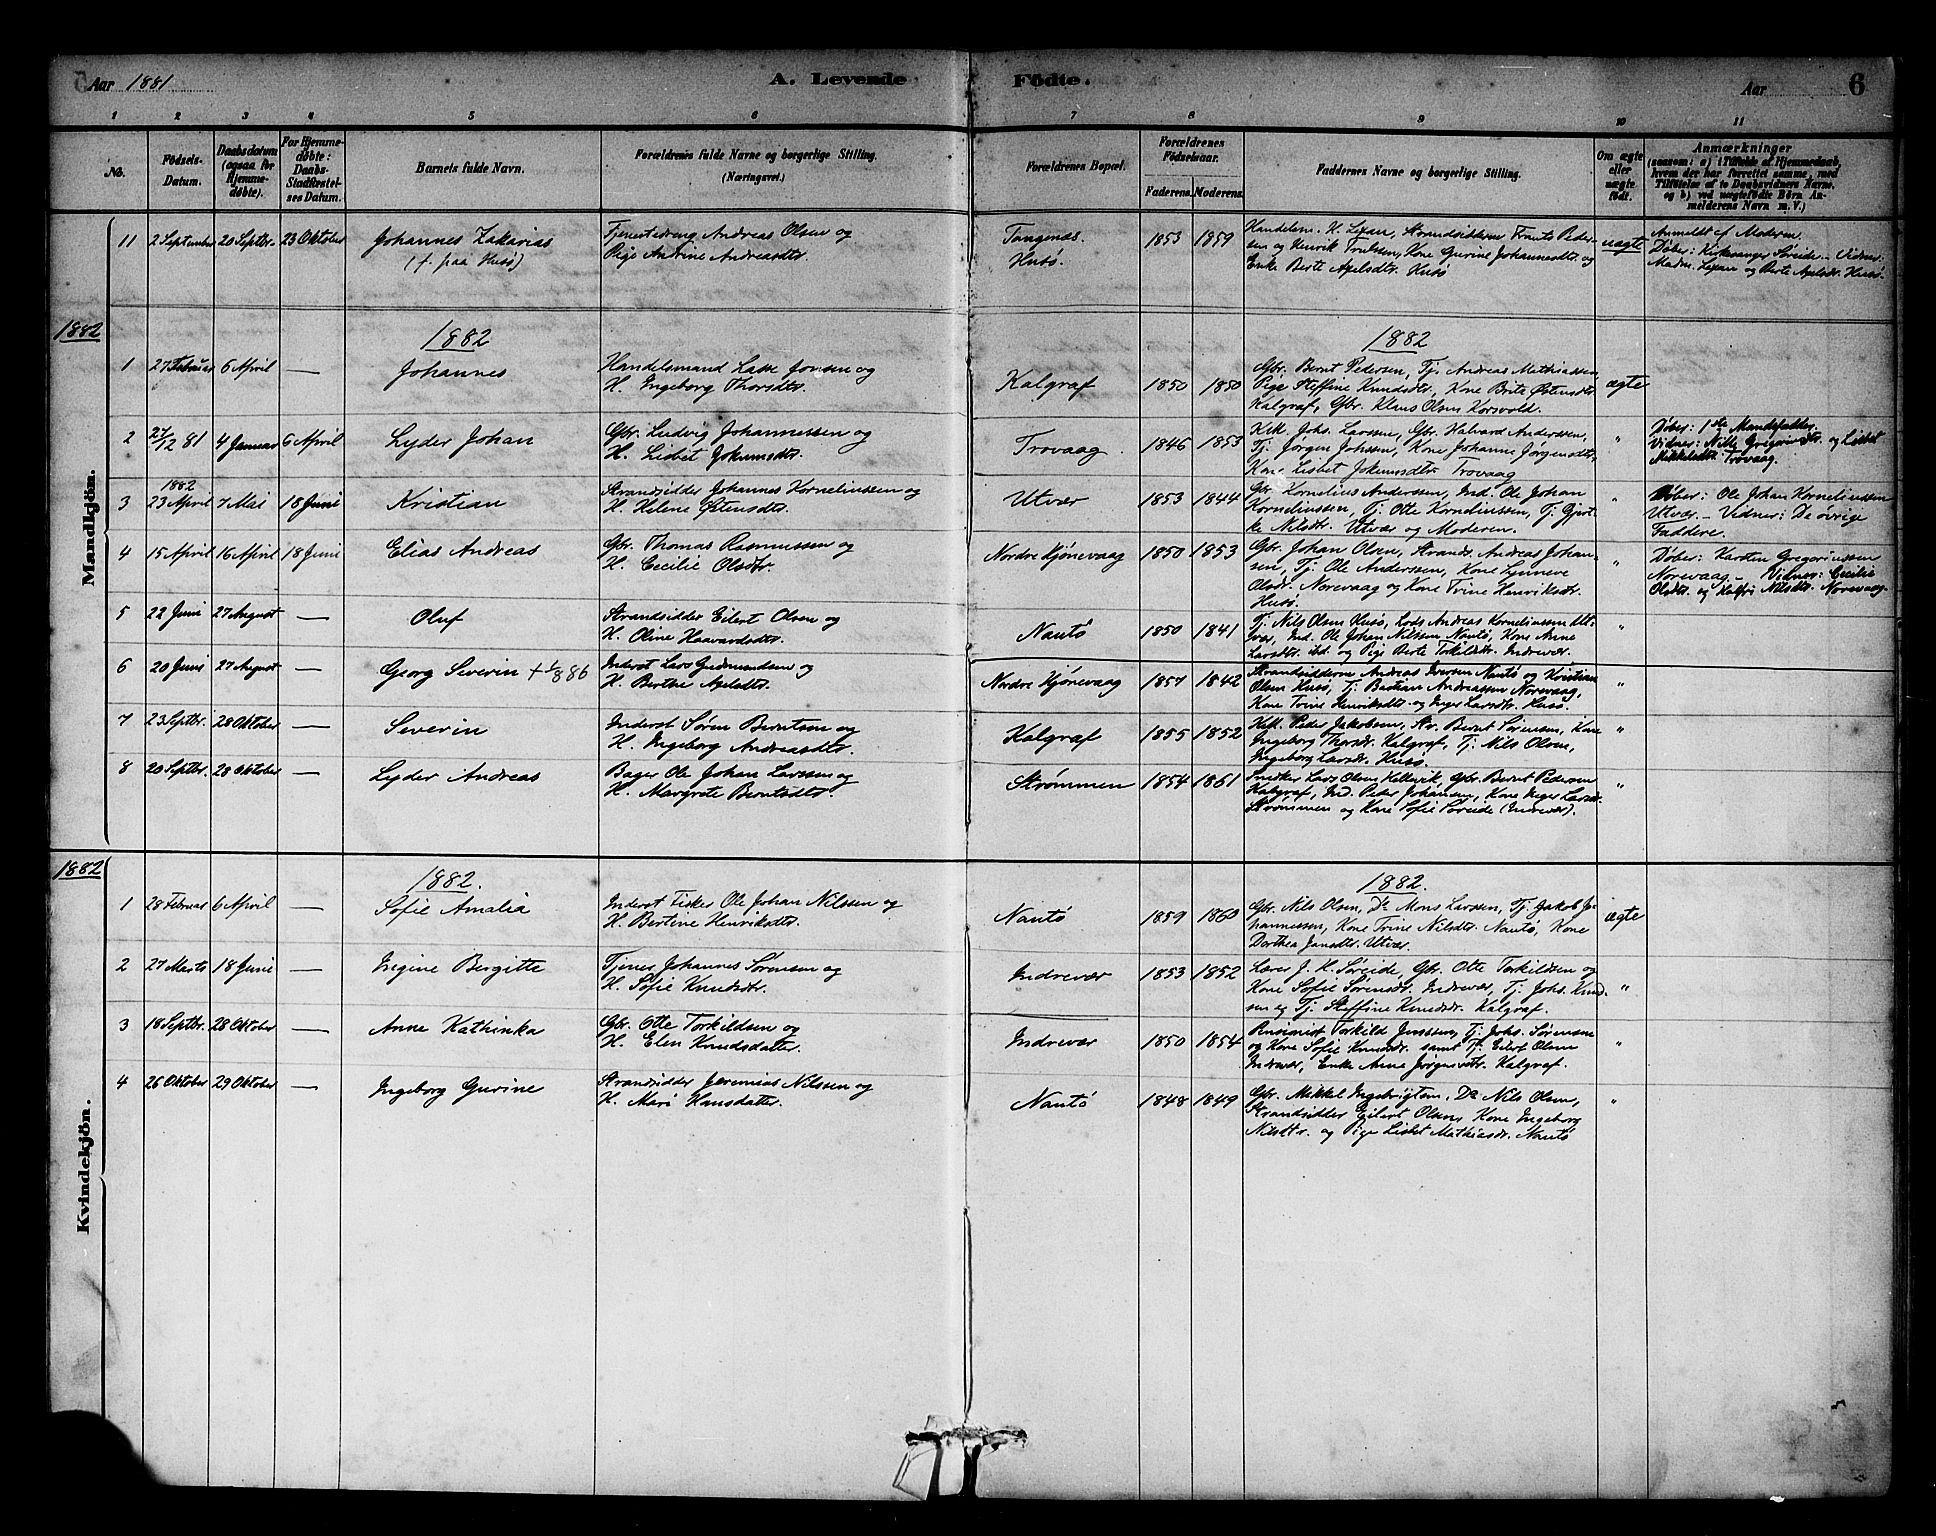 Aar 1881
A. Levende Födte.
Aar
6
1 2 3 4 5 6 7 8 9 10 11
No.
Födsels-Datum.
Daabsdatum (ogsaa for Hjemmedöbte).
For Hjemmedöbte: Daabs-Stadfæstelses Datum.
Barnets fulde Navn.
Forældrenes fulde Navne og borgerlige Stilling. (Næringsvei.)
Forældrenes Bopæl.
Forældrenes Födselsaar.
Faderens. Moderens.
Faddernes Navne og borgerlige Stilling.
Om ægte eller uægte födt.
Anmærkninger
(saasom: a) i Tilfælde af Hjemmedaab,
hvem der har forrettet samme, med
Tilföielse af to Daabsvidners Navne.
og b) ved uægtefödte Börn Anmelderens Navn m. V.)
Mandkjön.
11 2 September 20 Septbr. 23 Oktober
Johannes Zakarias
(f. paa Husø)
Tjenestedreng Andreas Olsen og
Pige Andrine Andreasdtr.
Tangenæs.
Husø.
1853 1859
Handelsm. H. Lexau, Strandsidderne Frants Peder-
sen og Henrik Trulsen, Kone Gurine Johannesdtr. og
Enke Berte Axelsdtr. Husø
uægte
Anmeldt af Moderen.
Døber: Kirkesanger Søreide - Vidner:
Madm. Lexau og Berte Axelsdr. Husø.
1882
1882
1882
1 27 Februar 6 April —
Johannes
Handelsmand Lasse Jonsen og
H. Ingeborg Thorsdtr.
Kalgraf 1850 1850
Gbr. Bernt Pedersen, Tj. Andreas Mathiassen,
Pige Steffine Knudsdtr., Kone Brite Østensdtr.
Kalgraf, Gbr. Klaus Olsen Korsvold.
ægte
2 27/12 81 4 Januar 6 April
Lyder Johan
Gbr. Ludvig Johannessen og
H. Lisbet Jokumsdtr.
Trovaag 1846 1853
Kik. Johs. Larssen, Gbr. Halvard Anderssen,
Tj. Jørgen Johnsen, Kone Johanne Jørgensdtr.
Kone Lisbet Jokumsdtr. Trovaag
"
Døber: 1ste Mandsfadder.
Vidner: Nille Gregoriusdtr. og Lisbet
Mikkelsdtr. Trovaag.
1882
3 23 April 7 Mai 18 Juni
Kristian
Strandsidder Johannes Korneliussen og
H. Helene Østensdtr.
Utvær 1853 1844
Gbr. Kornelius Anderssen, Ind. Ole Johan
Korneliussen, Tj. Otte Korneliussen, Tj. Gjert-
ke Nilsdtr. Utvær og Moderen.
"
Døber: Ole Johan Korneliussen
Utvær. - Vidner: De øvrige
Faddere.
4 15 April 16 April 18 Juni
Elias Andreas
Gbr. Thomas Rasmussen og
H. Cecilie Olsdtr.
Nordre Kjønevaag 1850 1853
Gbr. Johan Olsen, Strands. Andreas Johan-
sen, Tj. Ole Anderssen, Kone Synneve
Olsdtr. Norevaag og Kone Trine Henriksdtr.
Husø.
"
Døber: Karsten Gregoriussen
Norevaag - Vidner: Cecilie
Olsdtr. og Kalfri Nilsdtr. Norevaag.
5 22 Juni 27 August —
Oluf
Strandsidder Eilert Olsen og
H. Oline Haavardsdtr.
Nautø 1850 1841
Tj. Nils Olsen Husø, Lods Andreas Korneliussen Ut-
vær, Ind. Ole Johan Nilssen Nautø, Kone Anne
Larsdtr. ibd. og Pige Berte Torkildsdr. Indrevær.
"
6 20 Juni 27 August —
Georg Severin + 1/8 86
Inderst Lars Gudmundsen og
H. Berthe Axelsdtr.
Nordre Kjønevaag 1857 1842
Strandsidderne Andreas Iversen Nautø og Kristian
Olsen Husø, Tj. Bastian Andreassen Norevaag,
Kone Trine Henriksdtr. og Inger Larsdtr. Husø.
"
7 23 Septbr. 28 Oktober —
Severin
Inderst Søren Berntsen og
H. Ingeborg Andreasdtr.
Kalgraf 1855 1852
Kik. Peder Jakobsen, Str. Bernt Sørensen, Kone
Ingeborg Thorsdr. Kalgraf, Tj. Nils Olsen,
Ingeborg Larsdtr. Husø.
"
8 20 Septbr. 28 Oktober —
Lyder Andreas
Bager Ole Johan Larssen og
H. Margrete Berntsdtr.
Strømmen 1854 1861
Snedker Lars Olsen Hellevik, Gbr. Bernt Pedersen
Kalgraf, Ind. Peder Johansen, Kone Inger Larsdr.
Strømmen og Kone Sofie Søreide (Indrevær).
"
Kvindekjön.
1882
1882.
1882.
1 28 Februar 6 April —
Sofie Amalia
Inderst Fisker Ole Johan Nilssen og
H. Bertine Henriksdtr.
Nautø 1859 1860
Gbr. Nils Olsen, Do Mons Larssen, Tj. Jakob Jo-
hannessen, Kone Trine Nilsdtr. Nautø, Kone
Dorthea Jansdtr. Utvær.
ægte
2 27 Marts 18 Juni —
Ingine Bergitte
Tjener Johannes Sørensen og
H. Sofie Knudsdtr.
Indrevær 1853 1852
Lærer J. H. Søreide, Gbr. Otte Torkildsen og
Kone Sofie Sørensdtr. Indrevær, Tj. Johs. Knud-
sen og Tj. Steffine Knudsdr. Kalgraf.
"
3 18 Septbr. 28 Oktober —
Anne Kathinka
Gbr. Otte Torkildsen og
H. Elen Knudsdatter.
Indrevær 1850 1854
Pensionist Torkild Jenssen, Tj. Johs. Sørensen
og Kone Sofie Knudsdr. samt Tj. Eilert Olsen
Indrevær, Enke Anne Jørgensdtr. Kalgraf.
"
4 26 Oktober 29 Oktober —
Ingeborg Gurine
Strandsidder Jeremias Nilssen og
H. Mari Hansdatter.
Nautø 1848 1849
Gbr. Mikkel Ingebrigtsen, Do Nils Olsen,
Strandsidder Eilert Olsen, Kone Ingeborg
Nilsdtr. og Pige Lisbet Mathiasdr. Nautø
"